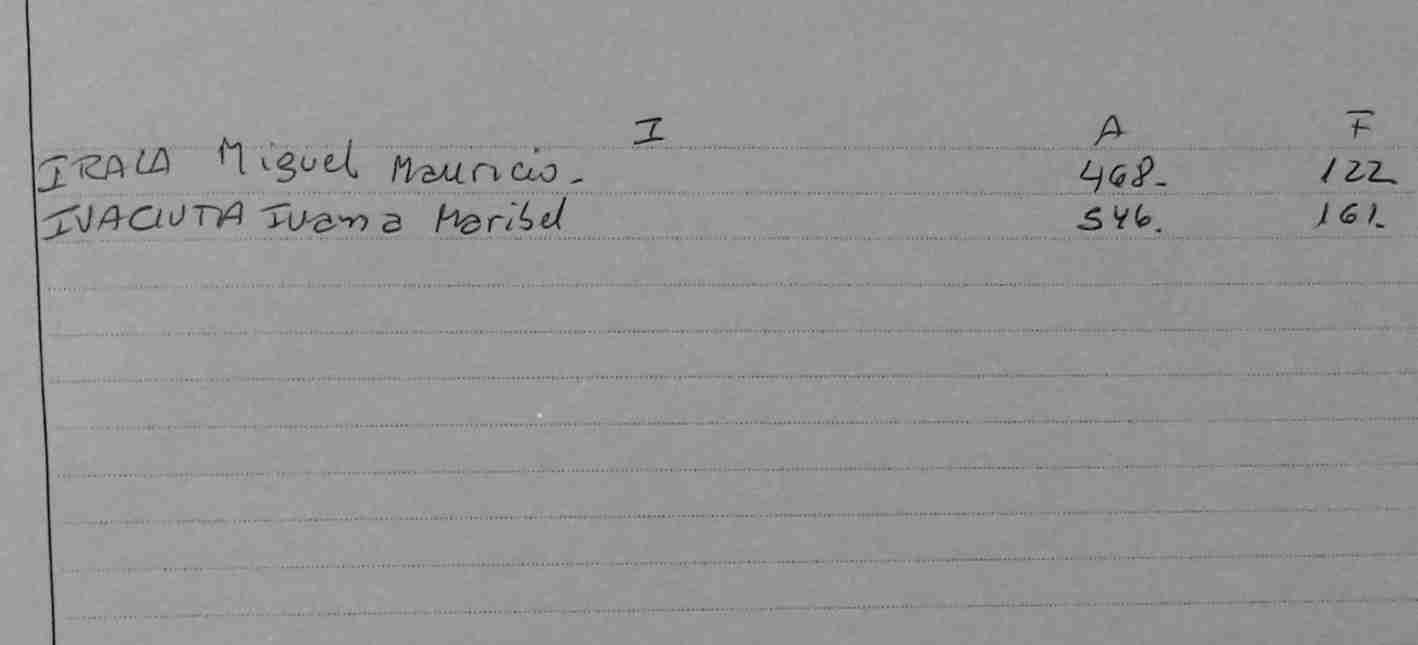 I A F
IRALA Miguel Mauricio. 468. 122
IVACIUTA Ivana Maribel 546. 161.